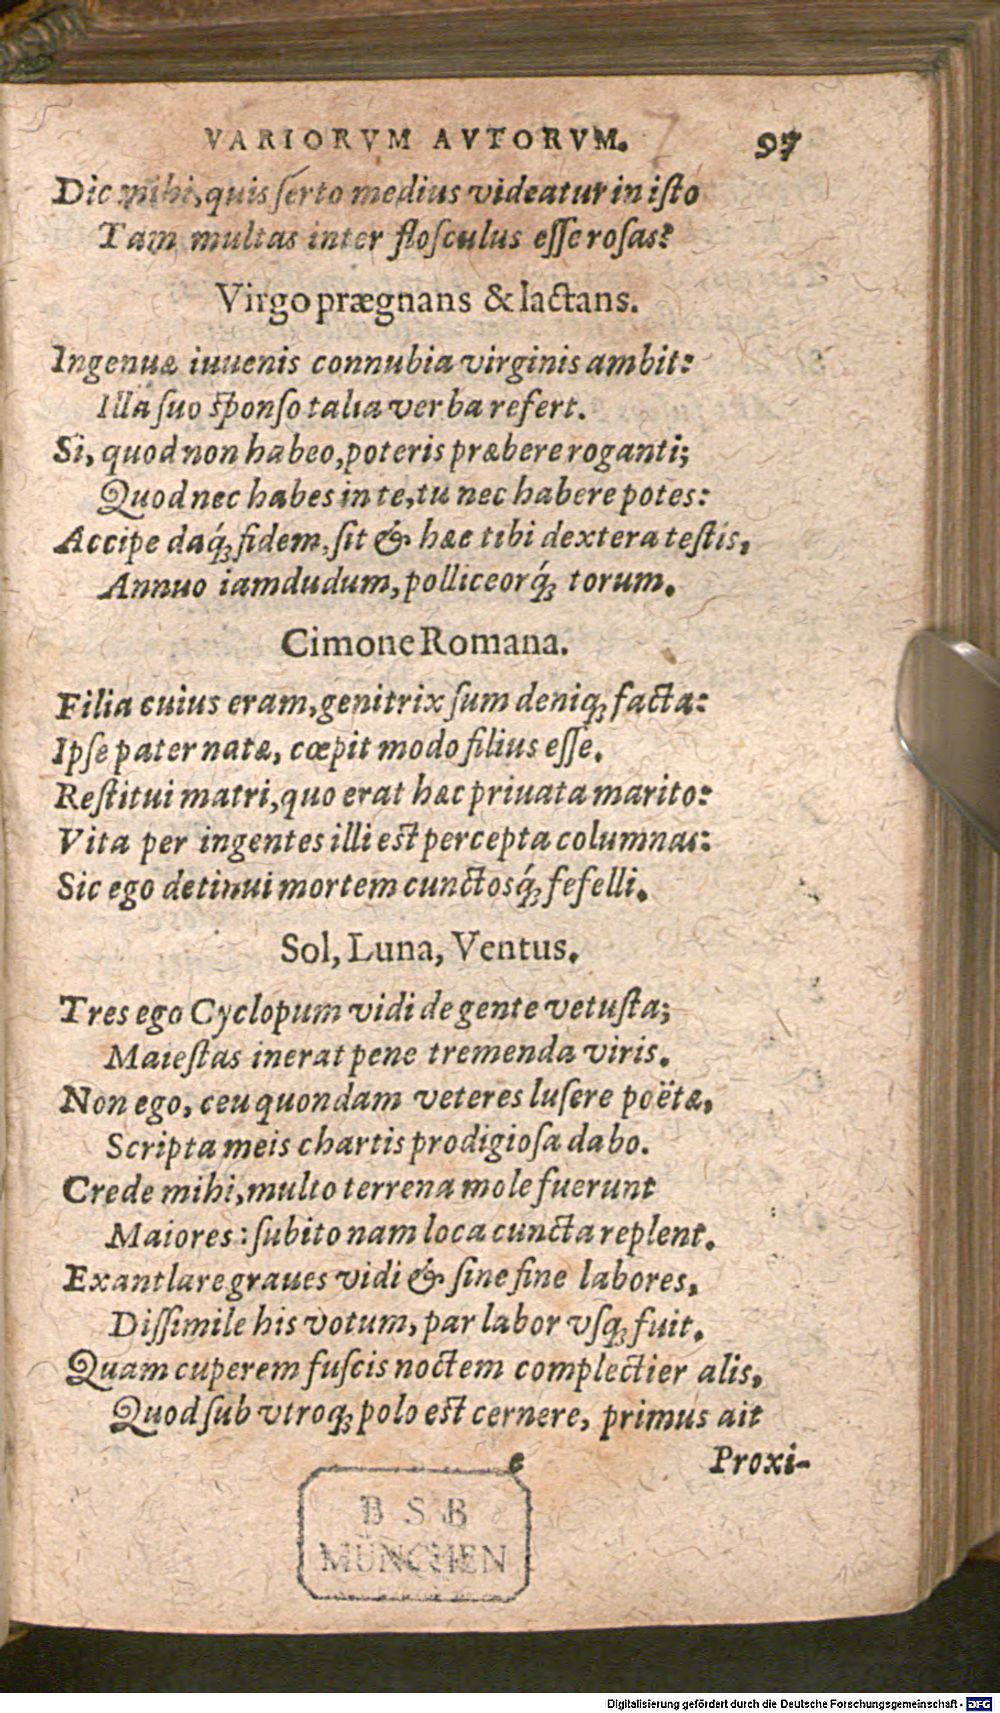 VARIORVM AVTORVM. 97
Dic mihi, quis ſerto medius videatur in iſto
Tam multas inter floſculus eſſe roſas?
Virgo prægnans & lactans.
Ingenuæ iuuenis connubia virginis ambit:
Illa ſuo ſponſo talia verba refert.
Si, quod non habeo, poteris præbere roganti;
Quod nec habes in te, tu nec habere potes:
Accipe daq́ꝫ fidem, ſit & hæc tibi dextera teſtis,
Annuo iamdudum, polliceorq́ꝫ torum.
Cimone Romana.
Filia cuius eram, genitrix ſum deniqꝫ facta:
Ipſe pater natæ, cœpit modo filius eſſe.
Reſtitui matri, quo erat hæc priuata marito:
Vita per ingentes illi eſt percepta columnas:
Sic ego detinui mortem cunctosq́ꝫ fefelli.
Sol, Luna, Ventus.
Tres ego Cyclopum vidi de gente vetuſta;
Maieſtas inerat pene tremenda viris.
Non ego, ceu quondam veteres luſere poëtæ,
Scripta meis chartis prodigioſa dabo.
Crede mihi, multo terrena mole fuerunt
Maiores: ſubito nam loca cuncta replent.
Exantlare graues vidi & ſine fine labores,
Diſſimile his votum, par labor vſqꝫ fuit.
Quam cuperem fuſcis noctem complectier alis,
Quod ſub vtroqꝫ polo eſt cernere, primus ait
e Proxi-
BSB
MÜNCHEN
Digitalisierung gefördert durch die Deutsche Forschungsgemeinschaft - DFG